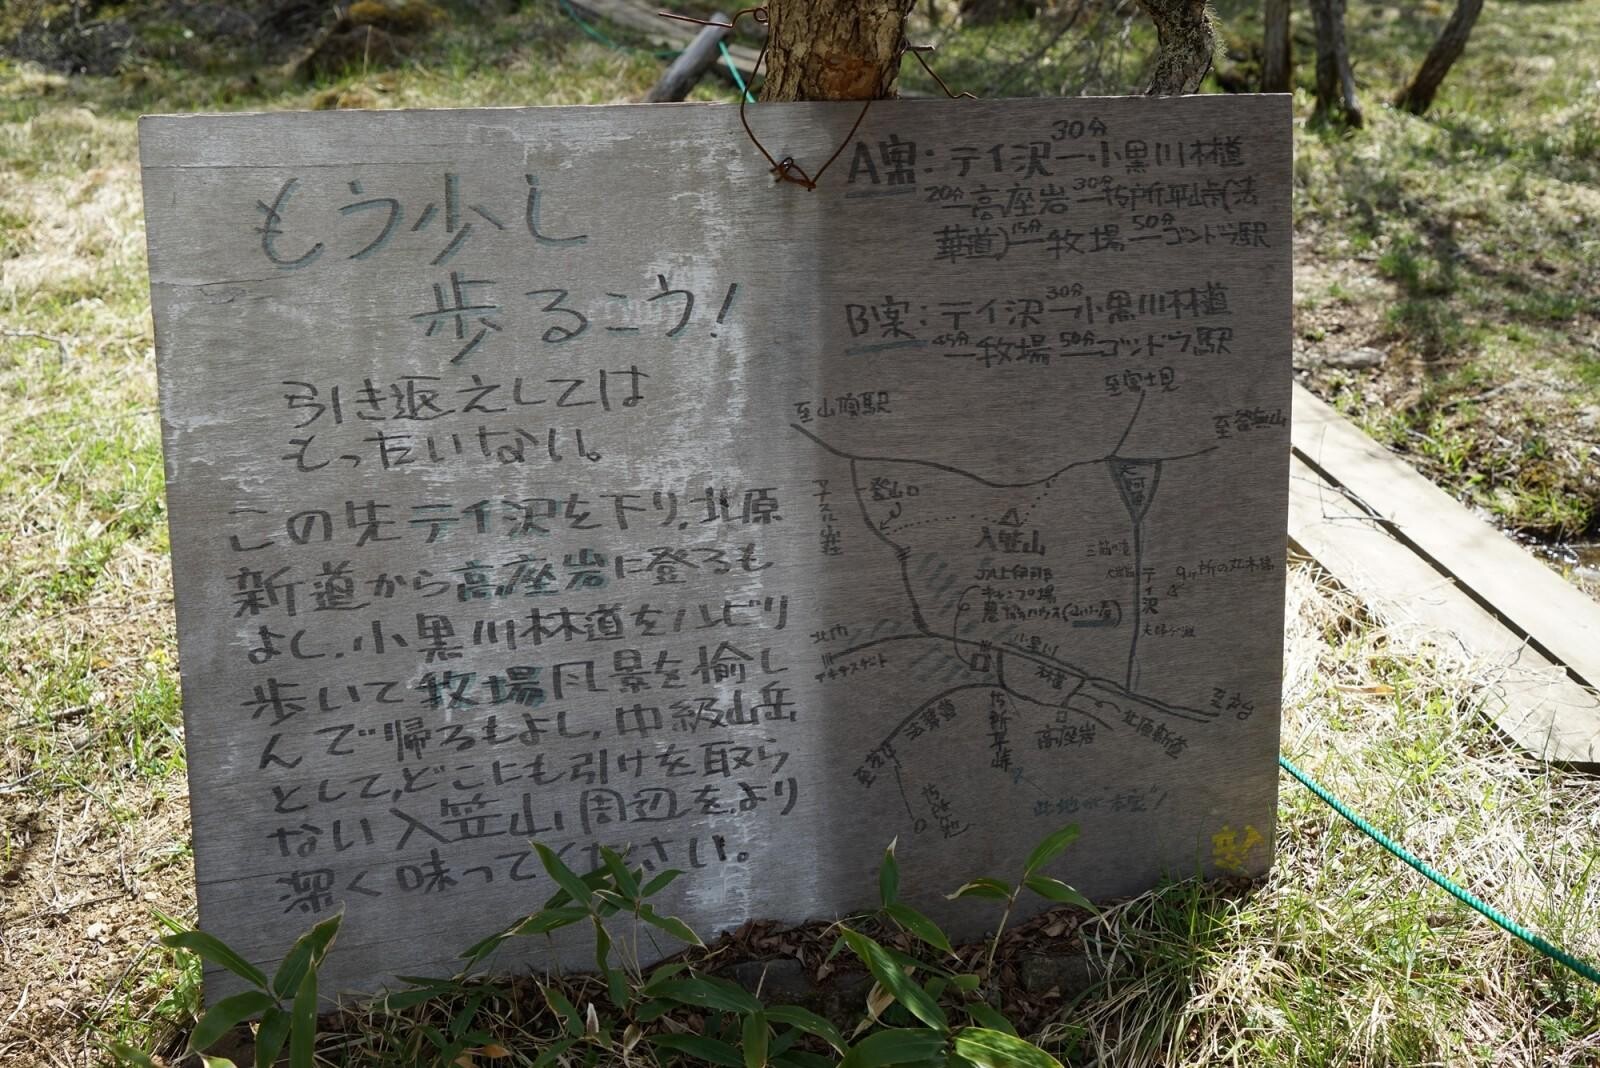 もう少し
歩るこう!
引き返えしては
もったいない。
この先テイ沢を下り、北原
新道から高座岩に登るも
よし、小黒川林道をルビリ
歩いて牧場風景を愉し
んで帰るもよし、中級山岳
として、どこにも引けを取ら
ない入笠山周辺を、より
深く味ってください。
A案:テイ沢30分―小黒川林道
20分―高座岩30分―御所平峠(法
華道)15分―牧場50分―ゴンドラ駅
B案:テイ沢30分―小黒川林道
45分―牧場50分―ゴンドラ駅
至富士見
至山頂駅
至釜無山
大阿原
登山口
マナスル山荘
入笠山
JA上伊那
キャンプ場
テイ沢
9ヶ所の丸木橋
小黒川
林道
北原新道
高座岩
御所平峠
法華道
御所池
此地が"本宝"!